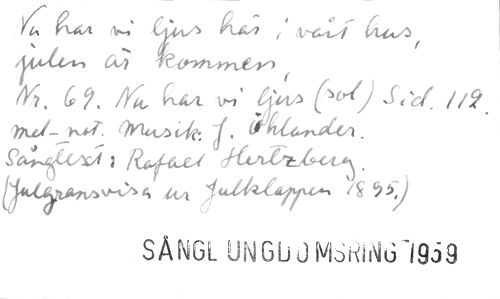 Nu har vi ljus här i vårt hus,
julen är kommen,
Nr. 69. Nu har vi ljus (sol) Sid. 112.
mel-not. Musik: J. Öhlander.
Sångtext: Rafael Hertzberg.
(Julgransvisa ur Julklappen 1895.)
SÅNGL UNGDOMSRING 1959